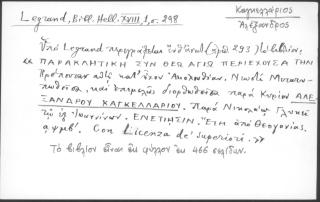 Legrand, Bibl. Hell. XVIII, 1, σ. 298
Καγκελλάριος
Ἀλέξανδρος
Ὑπὸ Legrand περιγράφεται 293
« ΠΑΡΑΚΛΗΤΙΚΗ ΣΥΝ ΘΕΩ ΑΓΙΩ ΠΕΡΙΕΧΟΥΣΑ ΤΗΝ
Πρέπουσαν αὐτῇ Ἀκολουθίαν. Νεωστὶ Μετατυ-
πωθεῖσα, καὶ ἐπιμελῶς διορθωθεῖσα παρὰ Κυρίου ΑΛΕ-
ΞΑΝΔΡΟΥ ΚΑΓΚΕΛΛΑΡΙΟΥ. Παρὰ Νικολάῳ Γλυκεῖ
τῷ ἐξ Ἰωαννίνων. ΕΝΕΤΙΗΣΙΝ. Ἔτει ἀπὸ Θεογονίας
αψμβʹ. Con Licenza de' Superiori. »
Τὸ βιβλίον εἶναι εἰς φύλλον ἐκ 466 σελίδων.